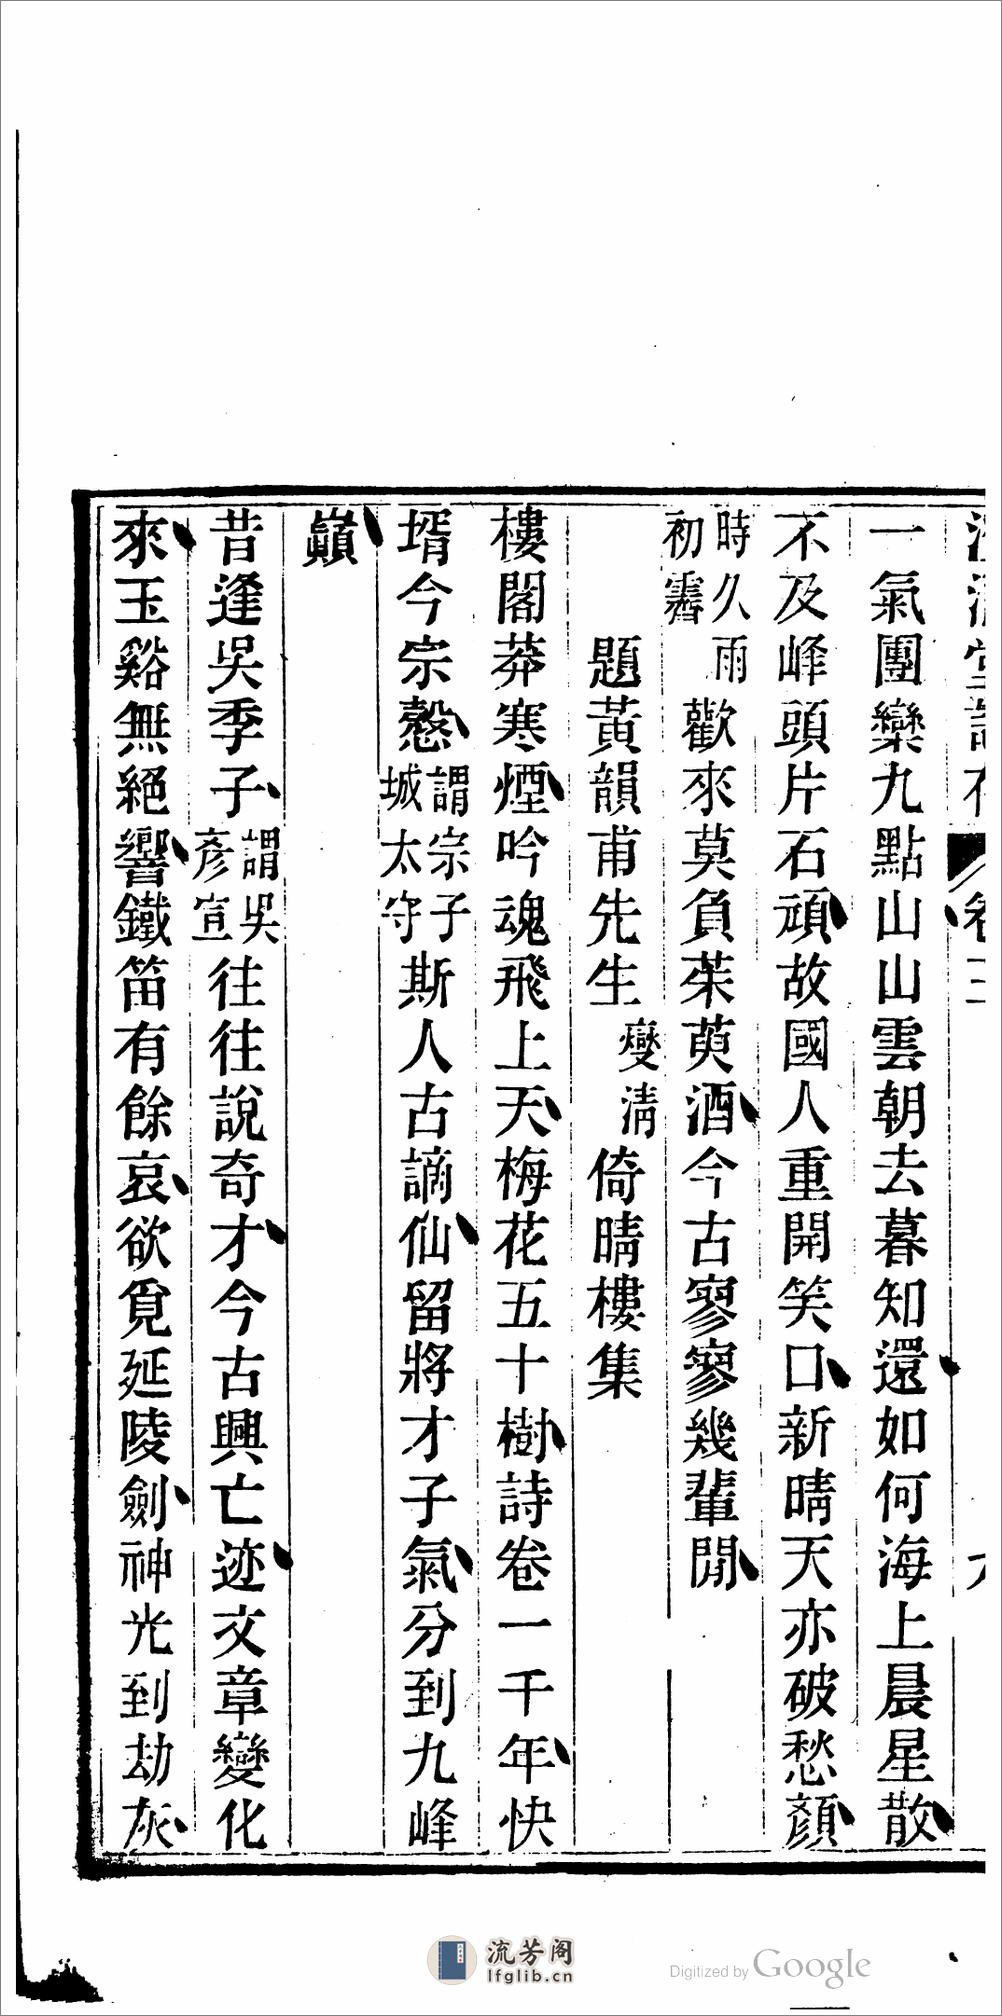 一氣團欒九點山山雲朝去暮知還如何海上晨星散
不及峰頭片石頑故國人重開笑口新晴天亦破愁顏
時久雨初霽歡來莫負茱萸酒今古寥寥幾輩閒
題黃韻甫先生燮清倚晴樓集
樓閣莽寒煙吟魂飛上天梅花五十樹詩卷一千年快
壻今宗慤謂宗子城太守斯人古謫仙留將才子氣分到九峰
巓
昔逢吳季子謂吳彥宣往往說奇才今古興亡迹文章變化
來玉谿無絕響鐵笛有餘哀欲覓延陵劍神光到劫灰
流芳阁
lfglib.cn
Digitized by Google